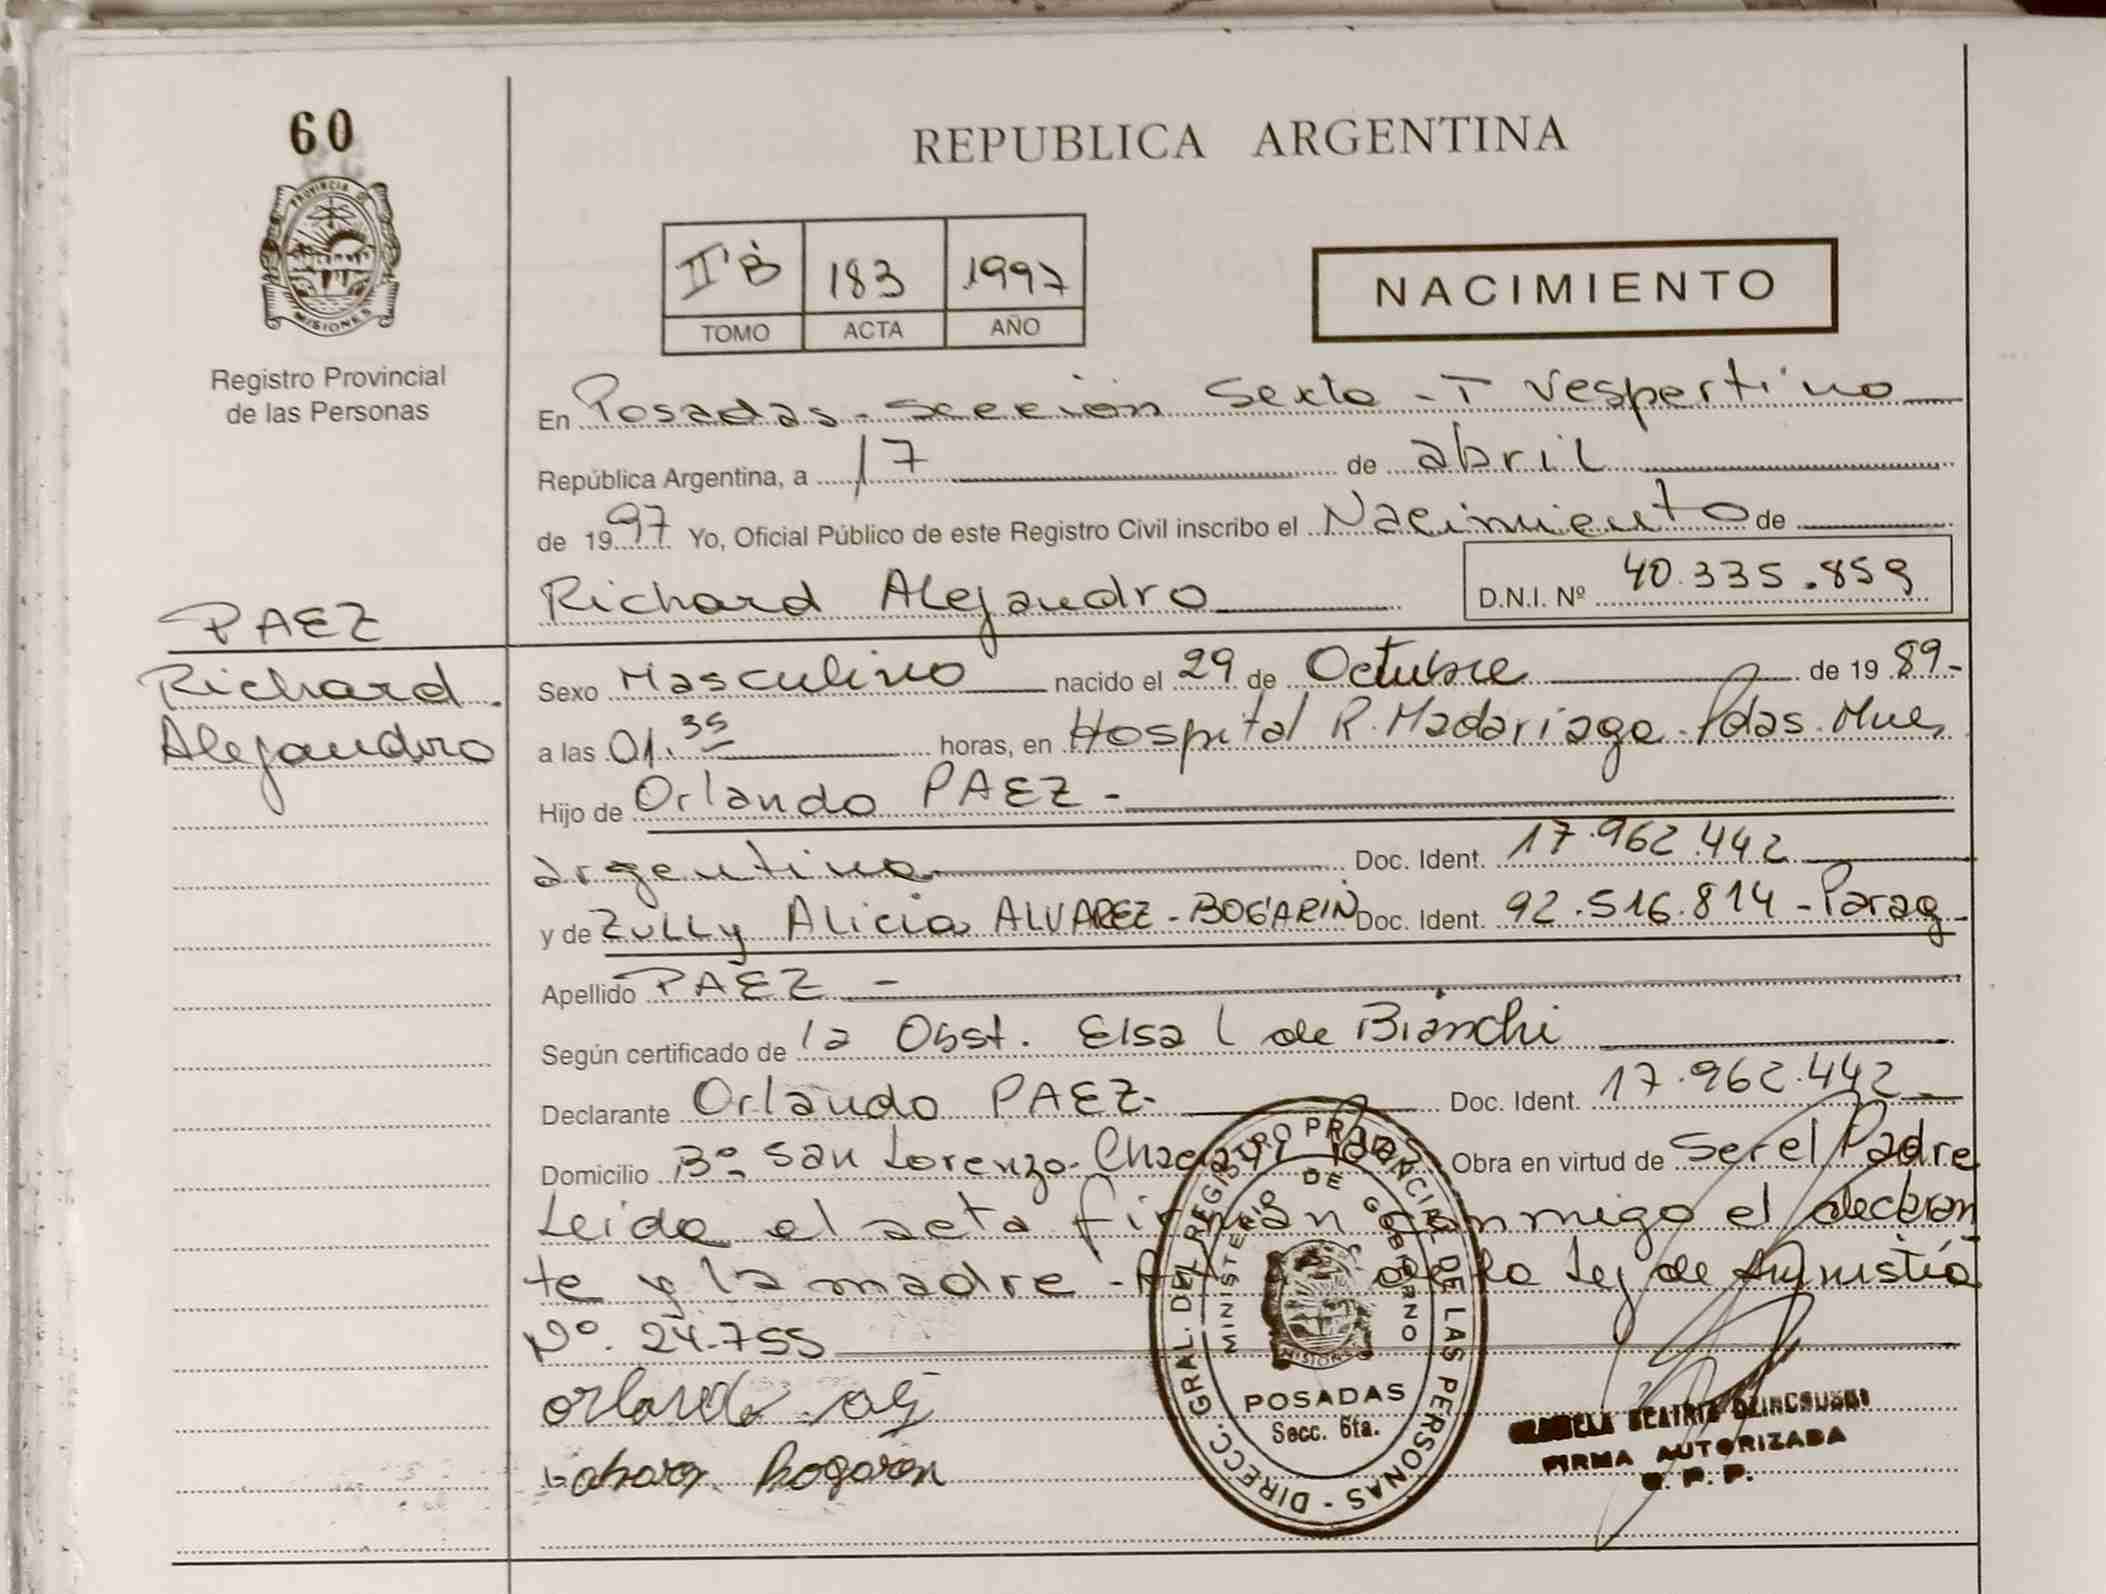 60
PROVINCIA DE
MISIONES
Registro Provincial
de las Personas
REPUBLICA ARGENTINA
II'B 183 1997
TOMO ACTA AÑO
NACIMIENTO
En Posadas - Sección Sexta - T Vespertino
República Argentina, a 17 de abril
de 1997 Yo, Oficial Público de este Registro Civil inscribo el Nacimiento de
Richard Alejandro D.N.I. Nº 40.335.859
PAEZ
Richard
Alejandro
Sexo Masculino nacido el 29 de Octubre de 19 89.-
a las 01.35 horas, en Hospital R. Madariaga - Pdas. Mnes
Hijo de Orlando PAEZ -
argentino Doc. Ident. 17.962.442
y de Zully Alicia ALVAREZ - BOGARIN Doc. Ident. 92.516.814 - Parag
Apellido PAEZ -
Según certificado de la Obst. Elsa L de Bianchi
Declarante Orlando PAEZ - Doc. Ident. 17.962.442
Domicilio Bº San Lorenzo - Pdas Obra en virtud de Ser el Padre
Leida el acta firman conmigo el declaran
te y la madre - de la Ley de Amnistía
Nº. 24.755
DIRECC. GRAL. DEL REGISTRO PROVINCIAL DE LAS PERSONAS -
MINISTERIO DE GOBIERNO
MISIONES
POSADAS
Secc. 6ta.
BEATRIZ
FIRMA AUTORIZADA
Bogarin